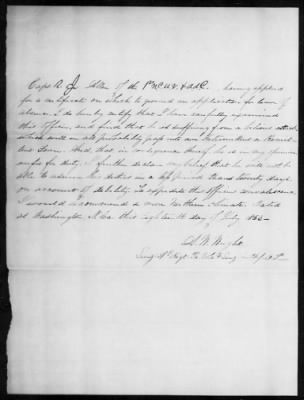 Capt R. J. Allen of the 1st N.C.U.V. having applied
for a certificate on which to ground an application for leave of
absence, I do hereby certify that I have carefully examined
this Officer, and find that he is suffering from a bilious attack
which will in all probability pass into an Intermittent or Remit-
tent Fever. And that in consequence thereof he is in my opinion
unfit for duty. I further declare my belief that he will not be
able to resume his duties in a less period than twenty days
on account of debility. To expedite this Officers convalescence
I would recommend a more Northern climate. Dated
at Washington N.C. this eighteenth day of July 186
D. W. Wright
Surg